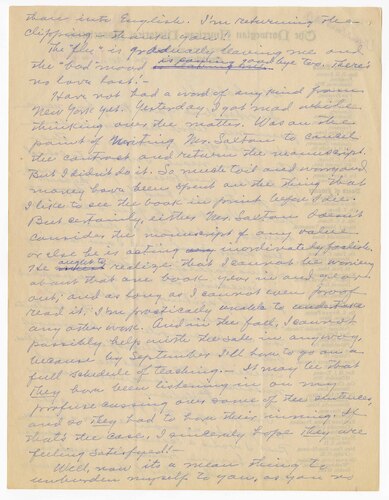 them into English. I'm returning the
clipping. Thank you.
The "flu" is gradually leaving me and
the "bad" mood is saying good bye too. There's
no love lost!-
Have not had a word of any kind from
New York yet. Yesterday I got mad while
thinking over the matter. Was on the
point of writing Mr. Salton to cancel
the contract and return the manuscript.
But I didn't do it. So much toil and worry and
money have been spent on the thing that
I like to see the book in print before I die.
But certainly, either Mr. Salton doesn't
consider the manuscript of any value
or else he is acting inordinately foolish.
He ought to realize that I cannot be worrying
about that one book year in and year
out, and as long as I cannot even proof
read it, I'm practically unable to undertake
any other work. And in the fall, I cannot
possibly help with the sale in any way,
because by September I'll have to go on a
full schedule of teaching.- It may be that
They have been listening in on my
profuse cussing over some of the sentences,
and so They had to have their inning. If
that's the case, I sincerely hope They are
feeling satisfied!-
Well, now it's a mean thing to
unburden myself to you, as you no